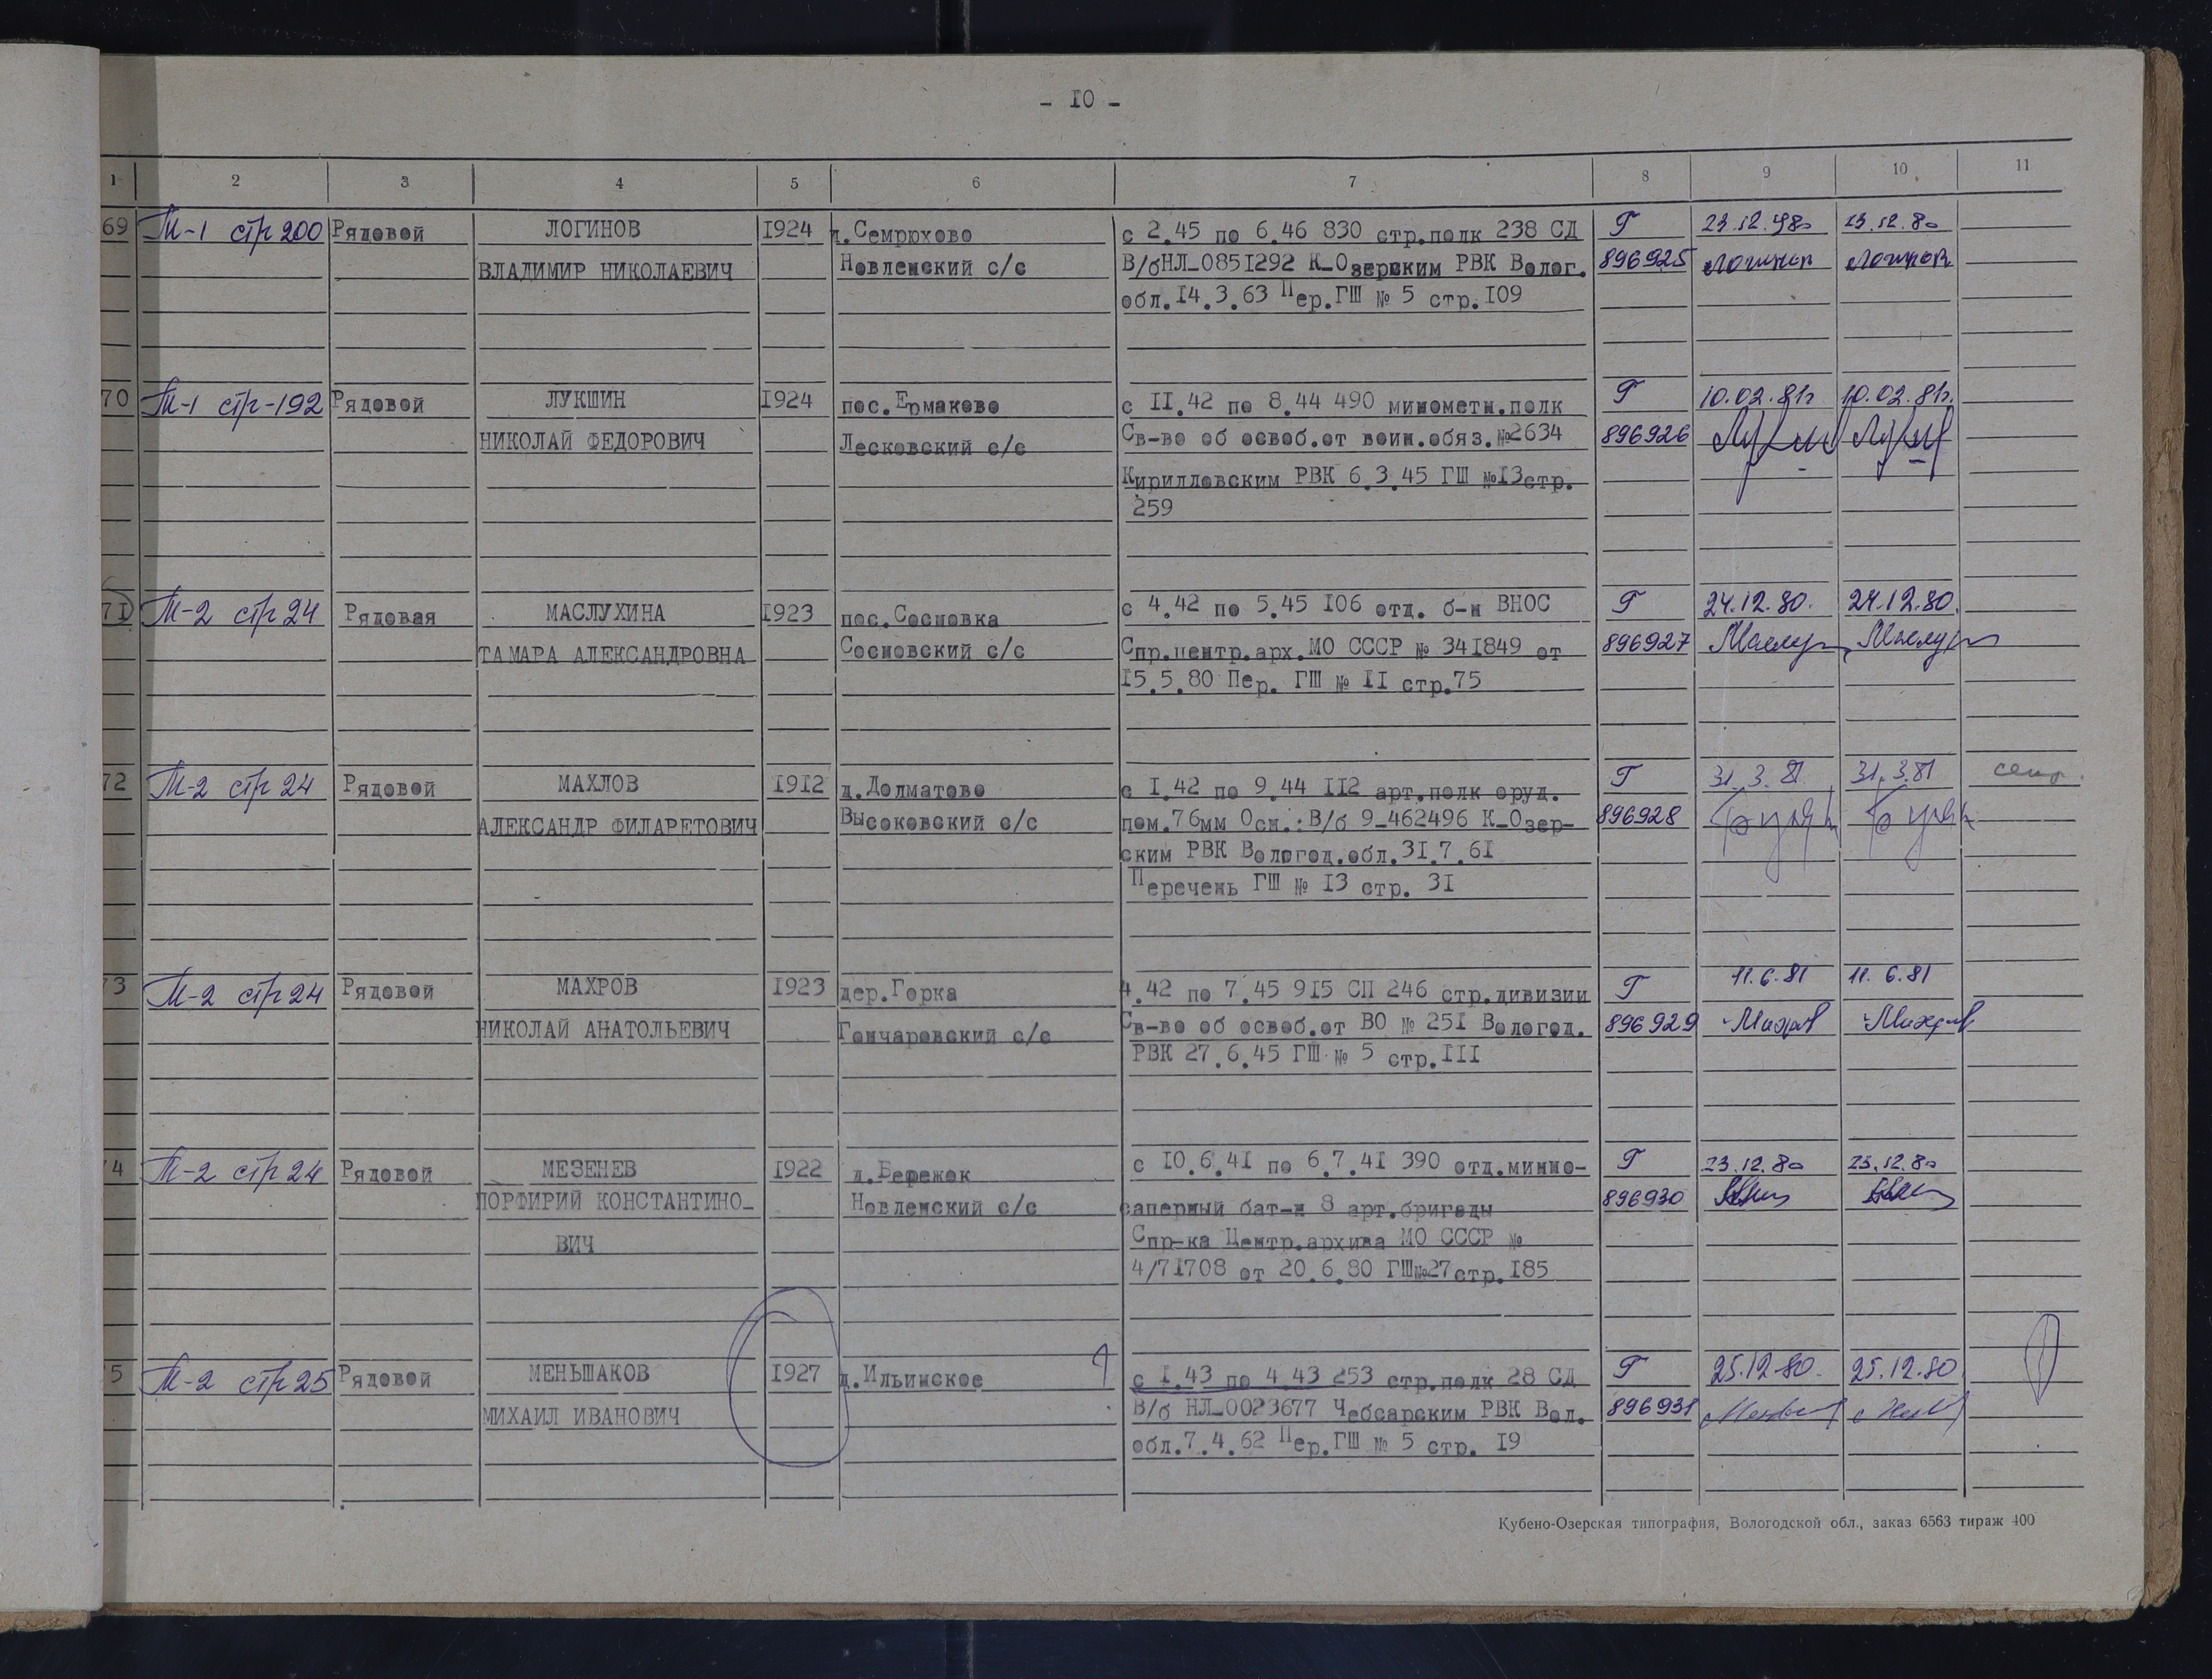 - 10 -
1 2 3 4 5 6 7 8 9 10 11
69 М-1 стр 200 Рядовой ЛОГИНОВ 1924 д.Семрюхово с 2.45 по 6.46 830 стр.полк 238 СД Г 23.12.1980 23.12.80
ВЛАДИМИР НИКОЛАЕВИЧ Новленский с/с В/бНЛ-0851292 К-Озерским РВК Волог. 896925 Логинов Логинов
обл.14.3.63 Пер.ГШ № 5 стр.109
70 М-1 стр-192 Рядовой ЛУКШИН 1924 пос.Ермаково с 11.42 по 8.44 490 минометн.полк Г 10.02.81г 10.02.81г.
НИКОЛАЙ ФЕДОРОВИЧ Лесковский с/с Св-во об освоб.от воин.обяз.№2634 896926
Кирилловским РВК 6.3.45 ГШ №13стр.
259
71 М-2 стр 24 Рядовая МАСЛУХИНА 1923 пос.Сосновка с 4.42 по 5.45 106 отд. б-н ВНОС Г 24.12.80. 24.12.80.
ТАМАРА АЛЕКСАНДРОВНА Сосновский с/с Спр.центр.арх.МО СССР № 341849 от 896927
15.5.80 Пер. ГШ № 11 стр.75
72 М-2 стр 24 Рядовой МАХЛОВ 1912 д.Долматово с 1.42 по 9.44 112 арт.полк оруд. Г 31.3.81 31.3.81
АЛЕКСАНДР ФИЛАРЕТОВИЧ Высоковский с/с пом.76мм Осн.:В/б 9-462496 К-Озер- 896928
ским РВК Вологод.обл.31.7.61
Перечень ГШ № 13 стр. 31
73 М-2 стр 24 Рядовой МАХРОВ 1923 дер.Горка 4.42 по 7.45 915 СП 246 стр.дивизии Г 11.6.81 11.6.81
НИКОЛАЙ АНАТОЛЬЕВИЧ Гончаровский с/с Св-во об освоб.от ВО № 251 Вологод. 896929 Махров Махров
РВК 27.6.45 ГШ № 5 стр.111
74 М-2 стр 24 Рядовой МЕЗЕНЕВ 1922 д.Бережок с 10.6.41 по 6.7.41 390 отд.минно- Г 23.12.80 23.12.80
ПОРФИРИЙ КОНСТАНТИНО- Новленский с/с саперный бат-н 8 арт.бригады 896930
ВИЧ Спр-ка Центр.архива МО СССР №
4/71708 от 20.6.80 ГШ№27стр.185
75 М-2 стр 25 Рядовой МЕНЬШАКОВ 1927 д.Ильинское с 1.43 по 4.43 253 стр.полк 28 СД Г 25.12.80. 25.12.80
МИХАИЛ ИВАНОВИЧ В/б НЛ-0023677 Чебсарским РВК Вол. 896931
обл.7.4.62 Пер.ГШ № 5 стр. 19
Кубено-Озерская типография, Вологодской обл., заказ 6563 тираж 400